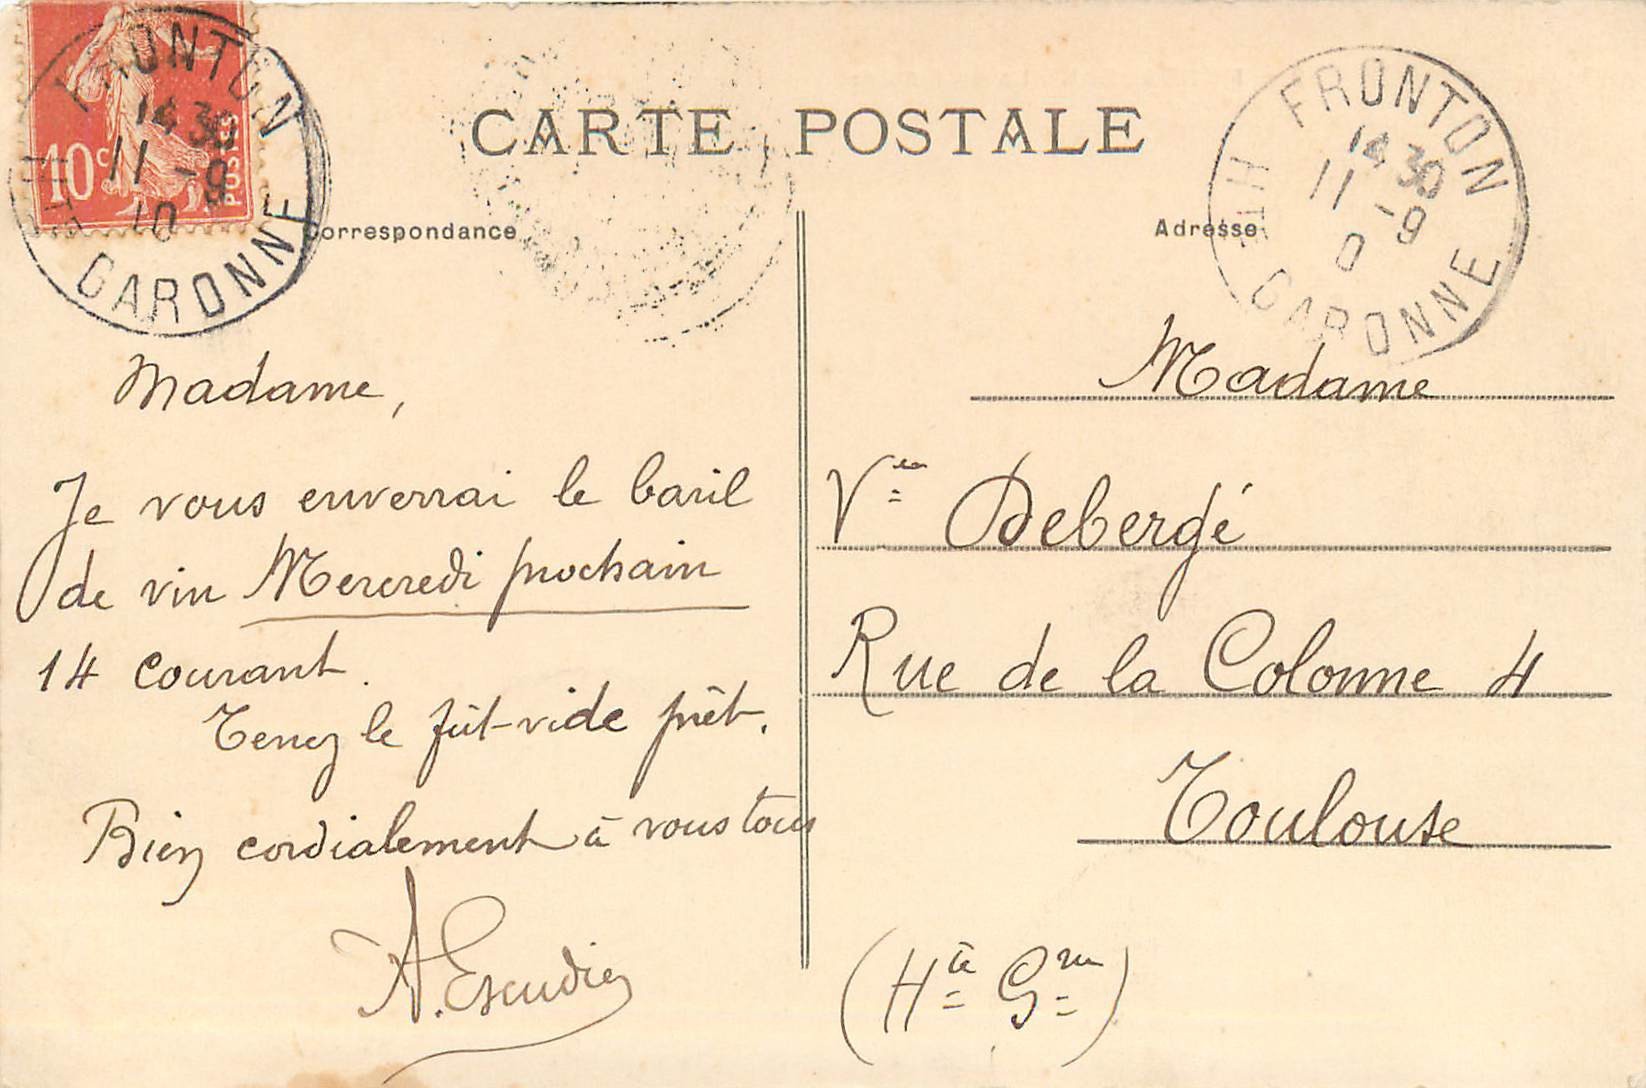 CARTE POSTALE
Correspondance
Adresse
10c
POSTES
FRONTON
14 30
11 -9
10
HTE GARONNE
FRONTON
14 30
11 -9
0
HTE GARONNE
Madame,
Je vous enverrai le baril
de vin Mercredi prochain
14 courant.
Tenez le fût-vide prêt.
Bien cordialement à vous tous
A. Escudier
Madame
Vve Debergé
Rue de la Colonne 4
Toulouse
(Hte Gne)